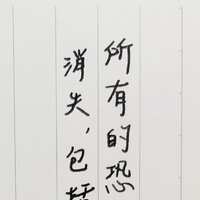 所有的恐
消失，包括